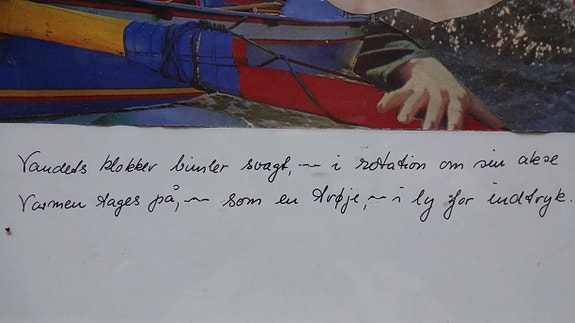 Vandets klokker bimler svagt, ~~ i rotation om sin akse
Varmen tages på, ~~ som en trøje, ~~ i ly for indtryk.